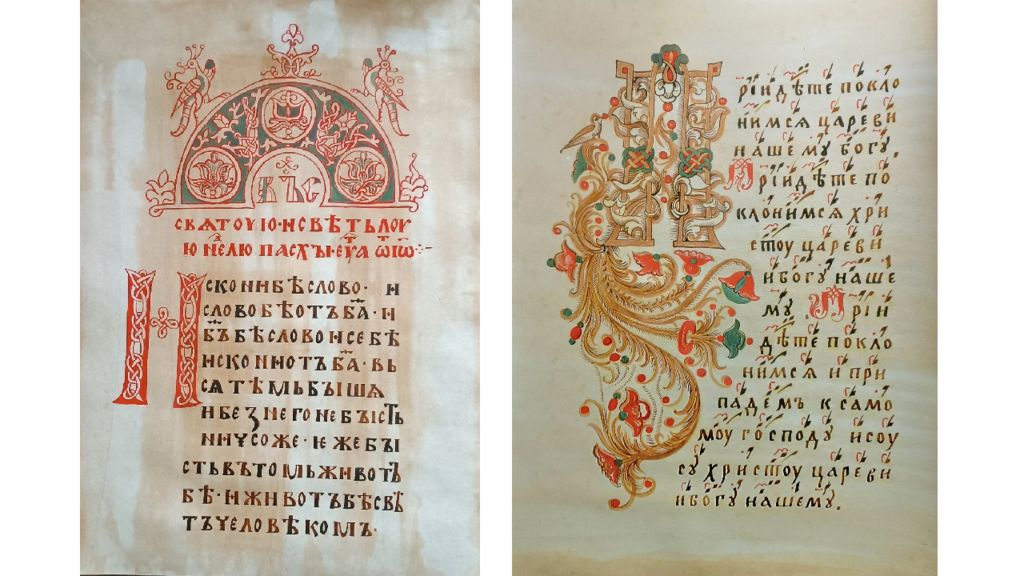 СВЯТОУЮ·И СВѢТЬЛОУ
Ю НЕ҃ЛЮ ПАСХЪІ·ЕУ҃А Ѿ ІѠ҃
ИСКОНИ БѢ СЛОВО· И
СЛОВО БѢ ОТЪ Б҃А· И
Б҃Ъ БѢ СЛОВО И СЕ БѢ
ИСКОНИ ОТЪ Б҃А· ВЬ
СꙖ ТѢМЬ БЫША
И БЕЗ НЕГО НЕ БЫСТЬ
НИЧСОЖЕ· ІЕЖЕ БЫ
СТЬ ВЪ ТОМЬ ЖИВОТЪ
БѢ· И ЖИВОТЪ БѢ СВѢ
ТЪ ЧЕЛОВѢКОМЪ·
Прїидѣте покло
нимся цареви
нашему богу.
Прїидѣте по
клонимся хри
стоу цареви
и богу наше
му Прїи
дѣте покло
нимся и при
падемъ к само
моу господу исоу
су христоу цареви
и богу нашему.